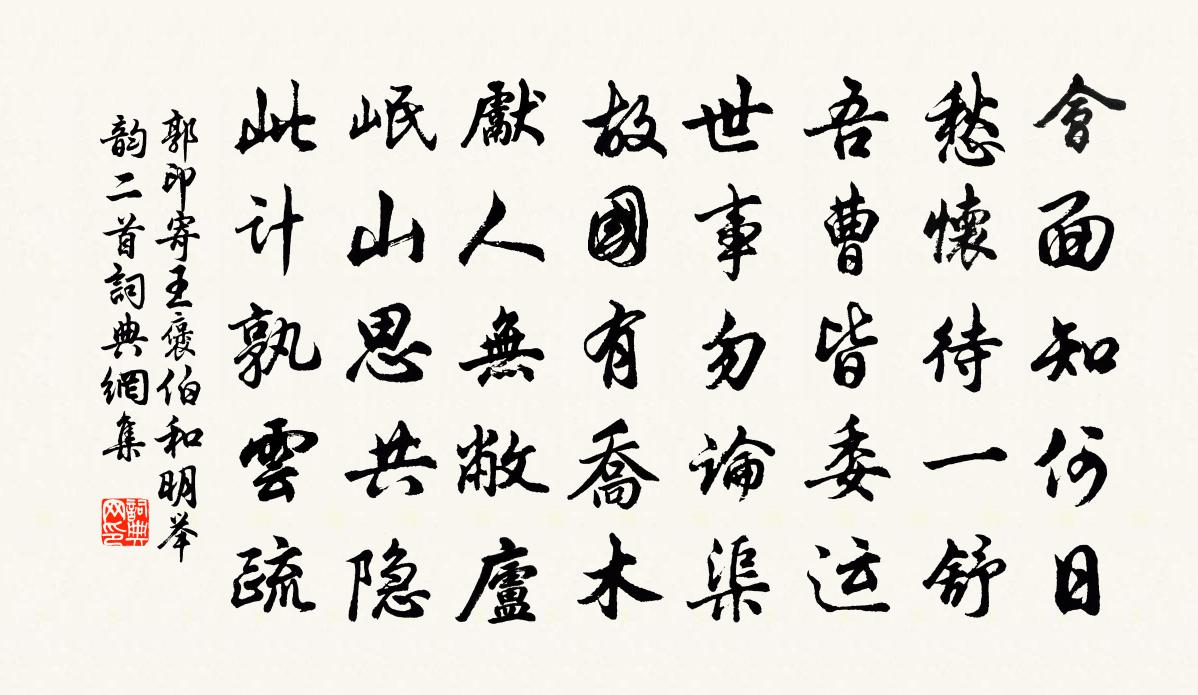 會面知何日
愁懷待一舒
吾曹皆委运
世事勿論渠
故國有喬木
獻人無敝廬
岷山思共隐
此计孰雲疏
郭印寄王褒伯和明举
韵二首詞典網集
詞典网印